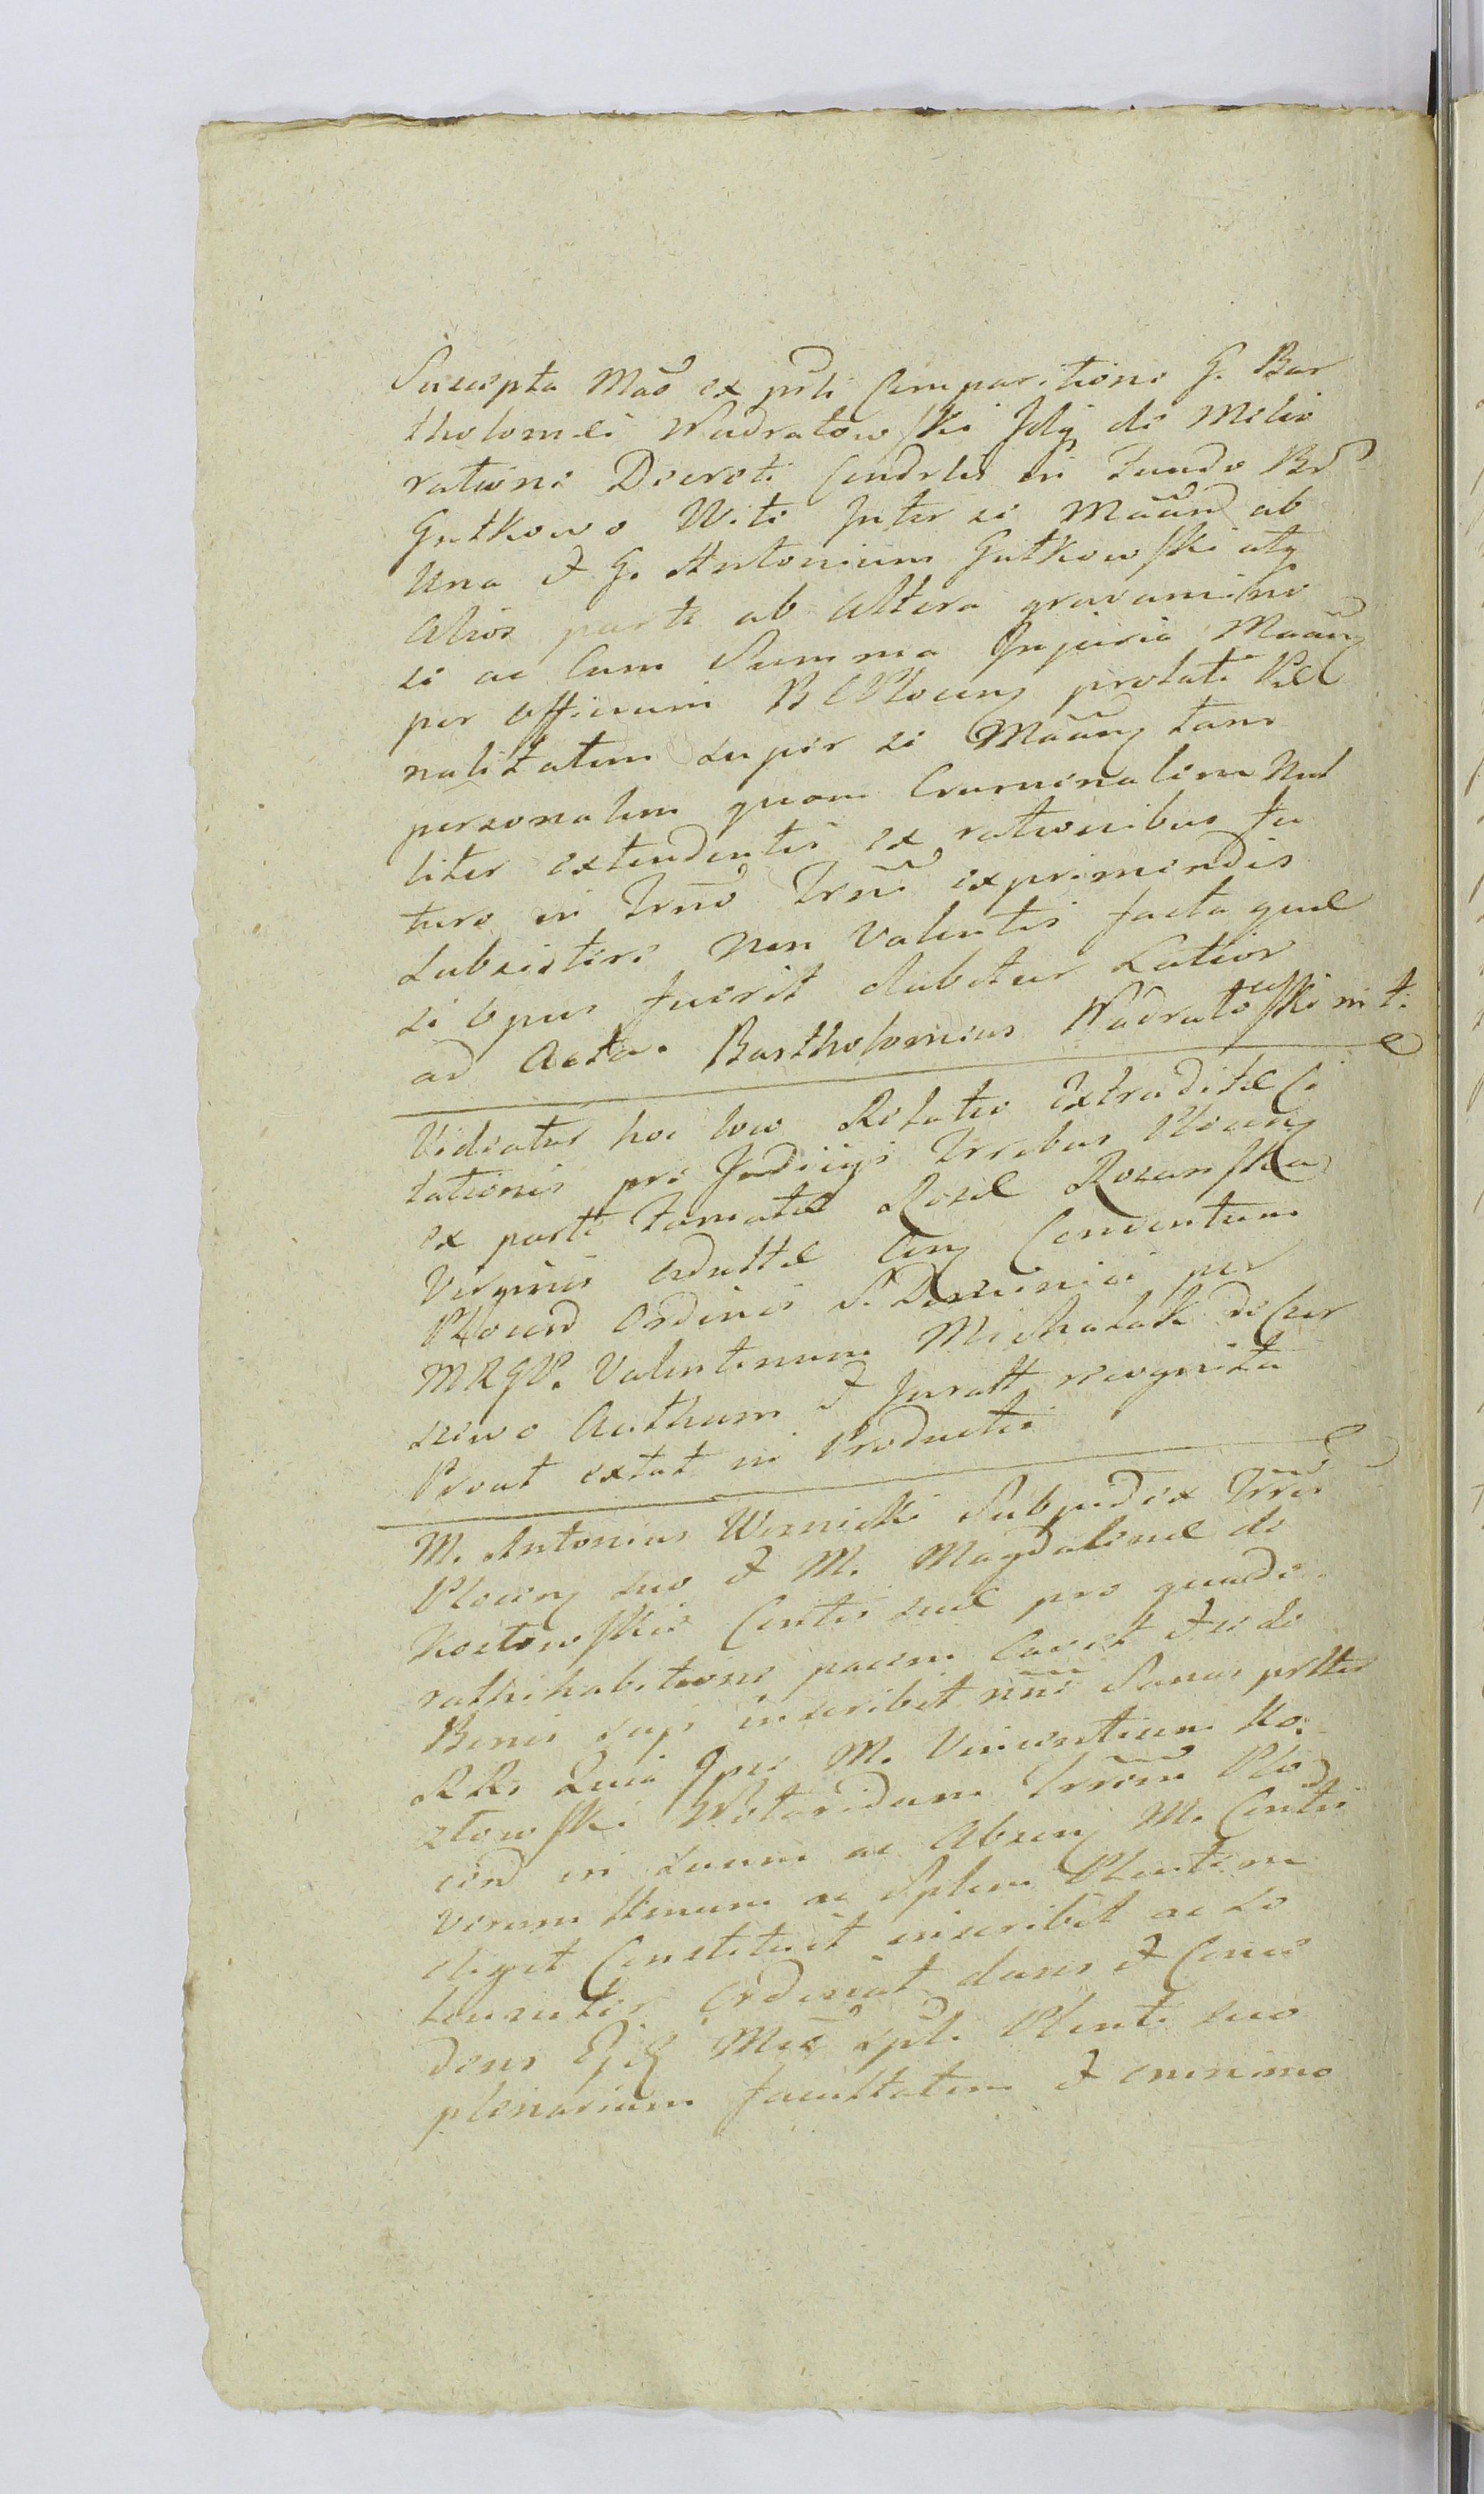 Suscepta Mão ex pñti Comparitione G. Bar
tholomei Nadratowski Jdg de Melio
ratione Decreti Condrlis in Fundo Bd
Gutkowo Witi Inter se Mããnd ab
Una et G. Antonium Gutkowski atq
Alios parte ab Altera gravamine
se ac Cum Summa Injuria Mããnq
per Officium Plocenq prolati Poe
nalitatem super se Mããnq tam
personalem quam Criminalem Nul
liter extendentis ex rationibus Fu
turo in Trno Trni exprimendis
Subsistere Non Valentis facta quae
si Opus fuerit dabitur Latior
ad Acta. Bartholomeus Nadratowski mt.
Videatur hoc loco Relatio Extraditae Ci
tationis pro Judicijs Trrbus Plocenq
ex parte Famatae Rosae Rozanska
Virginis Adultae Conq Conventum
Plocend Ordinis S. Dominici per
MRGP. Valentinum Michalak de Cier
niewo Authum et Juratt recognita
Prout extat in Productis
M. Antonius Wernicki Subjudex Trris
Plocenq suo et M. Magdalenae de
Kostowskie Contis suae pro quade
rathihabitione pacem Cavet et se de
Bonis sup inscribit nñi Sanus prttes
RR. Quia Ipse M. Vincentium Ko
ztowski Notaridum Trrem Plo
cend in suum ac Absenq M. Contis
Verum ttimum ac Splem Plentem
eligit Constituit inscribit ac so
lenniter Ordinat dans et Conce
dens Ejd Meo spli Plenti suo
plenariam facultatem et omnimo